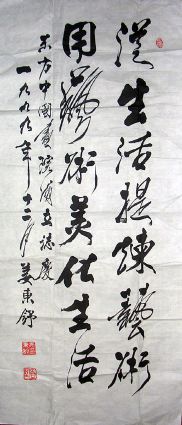 從生活提煉藝術
用藝術美化生活
东方中國畫院成立誌慶
一九九年十二月 姜東舒